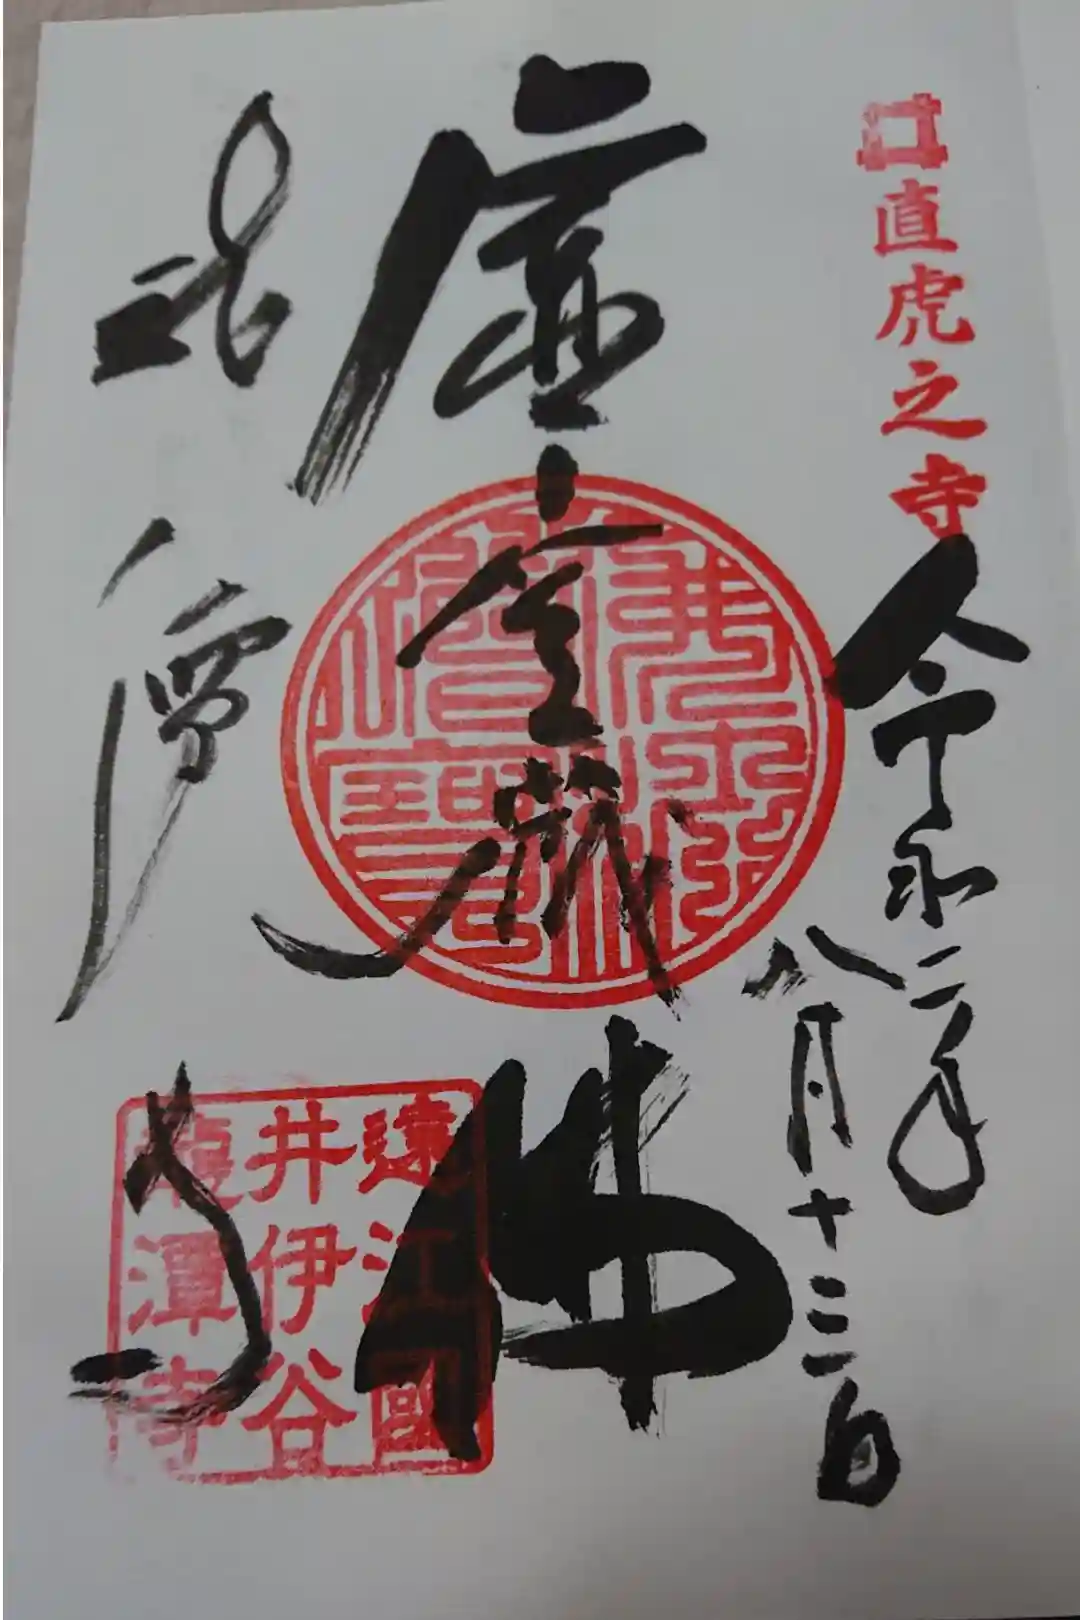 直虎之寺
令和二年
八月十三日
虚空蔵
佛
龍潭寺
佛法僧寶
遠江國
井伊谷
龍潭寺